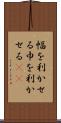 幅を利かせ
る巾を利か
せる